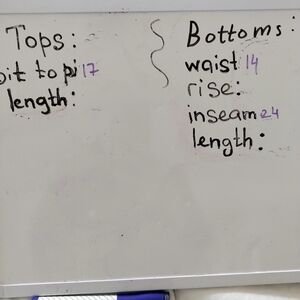 Tops:
pit to pi 17
length:
Bottoms:
waist 14
rise:
inseam 24
length: